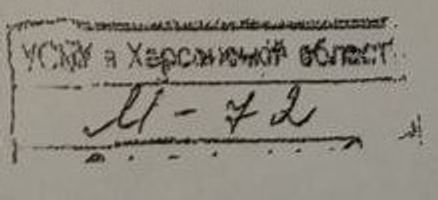 УСБУ в Херсонській област
М - 72